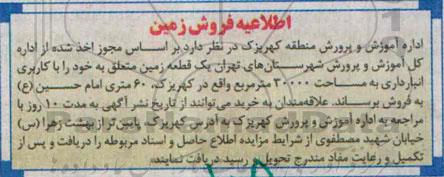 اطلاعیه فروش زمین
اداره آموزش و پرورش منطقه کهریزک در نظر دارد بر اساس مجوز اخذ شده از اداره
کل آموزش و پرورش شهرستان‌های تهران یک قطعه زمین متعلق به خود را با کاربری
انبارداری به مساحت ۳۰۰۰۰ مترمربع واقع در کهریزک، ۶۰ متری امام حسین (ع)
به فروش برساند. علاقه‌مندان به خرید می‌توانند از تاریخ نشر آگهی به مدت ۱۰ روز با
مراجعه به اداره آموزش و پرورش کهریزک به آدرس کهریزک، پایین‌تر از بهشت زهرا (س)
خیابان شهید مصطفوی از شرایط مزایده اطلاع حاصل و اسناد مربوطه را دریافت و پس از
تکمیل و رعایت مفاد مندرج تحویل و رسید دریافت نمایند.